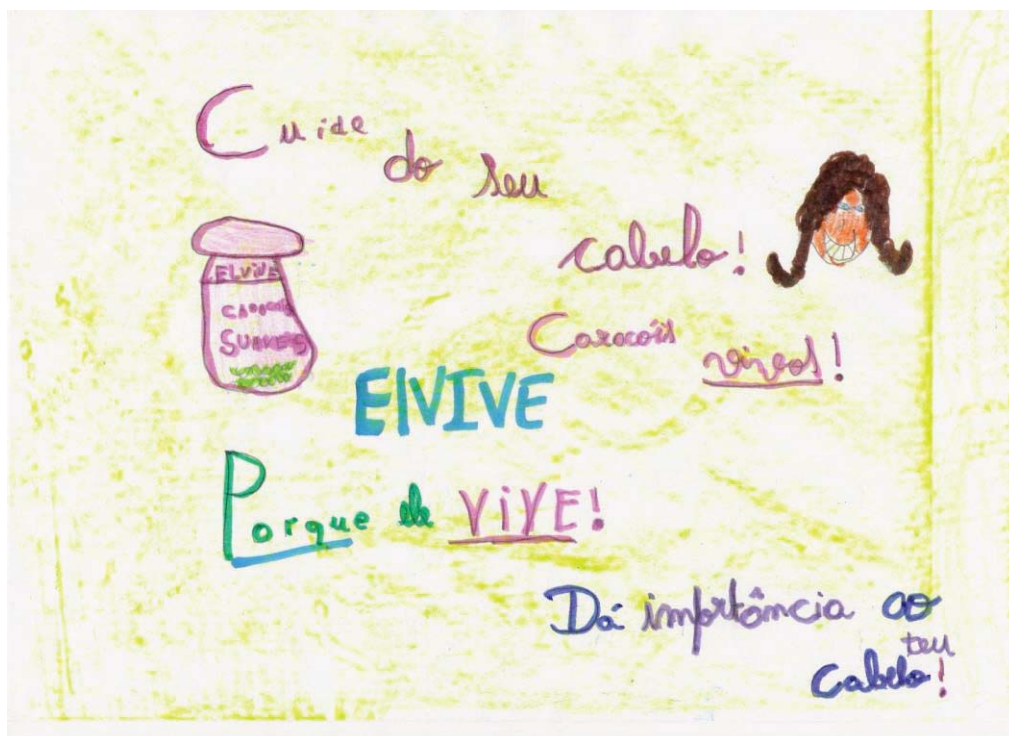 Cuide
do seu
cabelo!
ELVIVE
CARACOIS
SUAVES
Caracóis
vivos!
ElVIVE
Porque ele ViVE!
Dá importância ao
teu
cabelo!